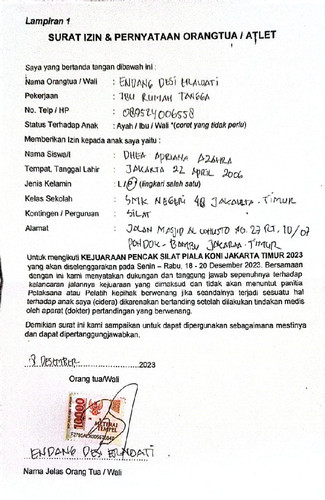 Lampiran 1
SURAT IZIN & PERNYATAAN ORANGTUA / ATLET
Saya yang bertanda tangan dibawah ini :
Nama Orangtua / Wali : ENDANG DESI ERAWATI
Pekerjaan : IBU RUMAH TANGGA
No. Telp / HP : 089524006558
Status Terhadap Anak : Ayah / Ibu / Wali *(coret yang tidak perlu)
Memberikan Izin kepada anak saya yaitu :
Nama Siswa/i : DHEA ADRIANA AZAHRA
Tempat, Tanggal Lahir : JAKARTA 22 APRIL 2006
Jenis Kelamin : L / P (lingkari salah satu)
Kelas Sekolah : SMK NEGERI 48 JAKARTA TIMUR
Kontingen / Perguruan : SILAT
Alamat : JALAN MASJID AL NO. 27 RT. 10/07
PONDOK BAMBU JAKARTA TIMUR
Untuk mengikuti KEJUARAAN PENCAK SILAT PIALA KONI JAKARTA TIMUR 2023
yang akan diselenggarakan pada Senin – Rabu, 18 - 20 Desember 2023. Bersamaan
dengan ini kami menyatakan dukungan dan tanggung jawab sepenuhnya terhadap
kelancaran jalannya kejuaraan yang dimaksud dan tidak akan menuntut panitia
Pelaksana atau Pelatih kepihak berwenang jika seandainya terjadi sesuatu hal
terhadap anak saya (cidera) dikarenakan bertanding setelah dilakukan tindakan medis
oleh aparat (dokter) pertandingan yang berwenang.
Demikian surat ini kami sampaikan untuk dapat dipergunakan sebagaimana mestinya
dan dapat dipertanggungjawabkan.
8 DESEMBER 2023
Orang tua/Wali
10000
METERAI
TEMPEL
ENDANG DESI ERAWATI
Nama Jelas Orang Tua / Wali